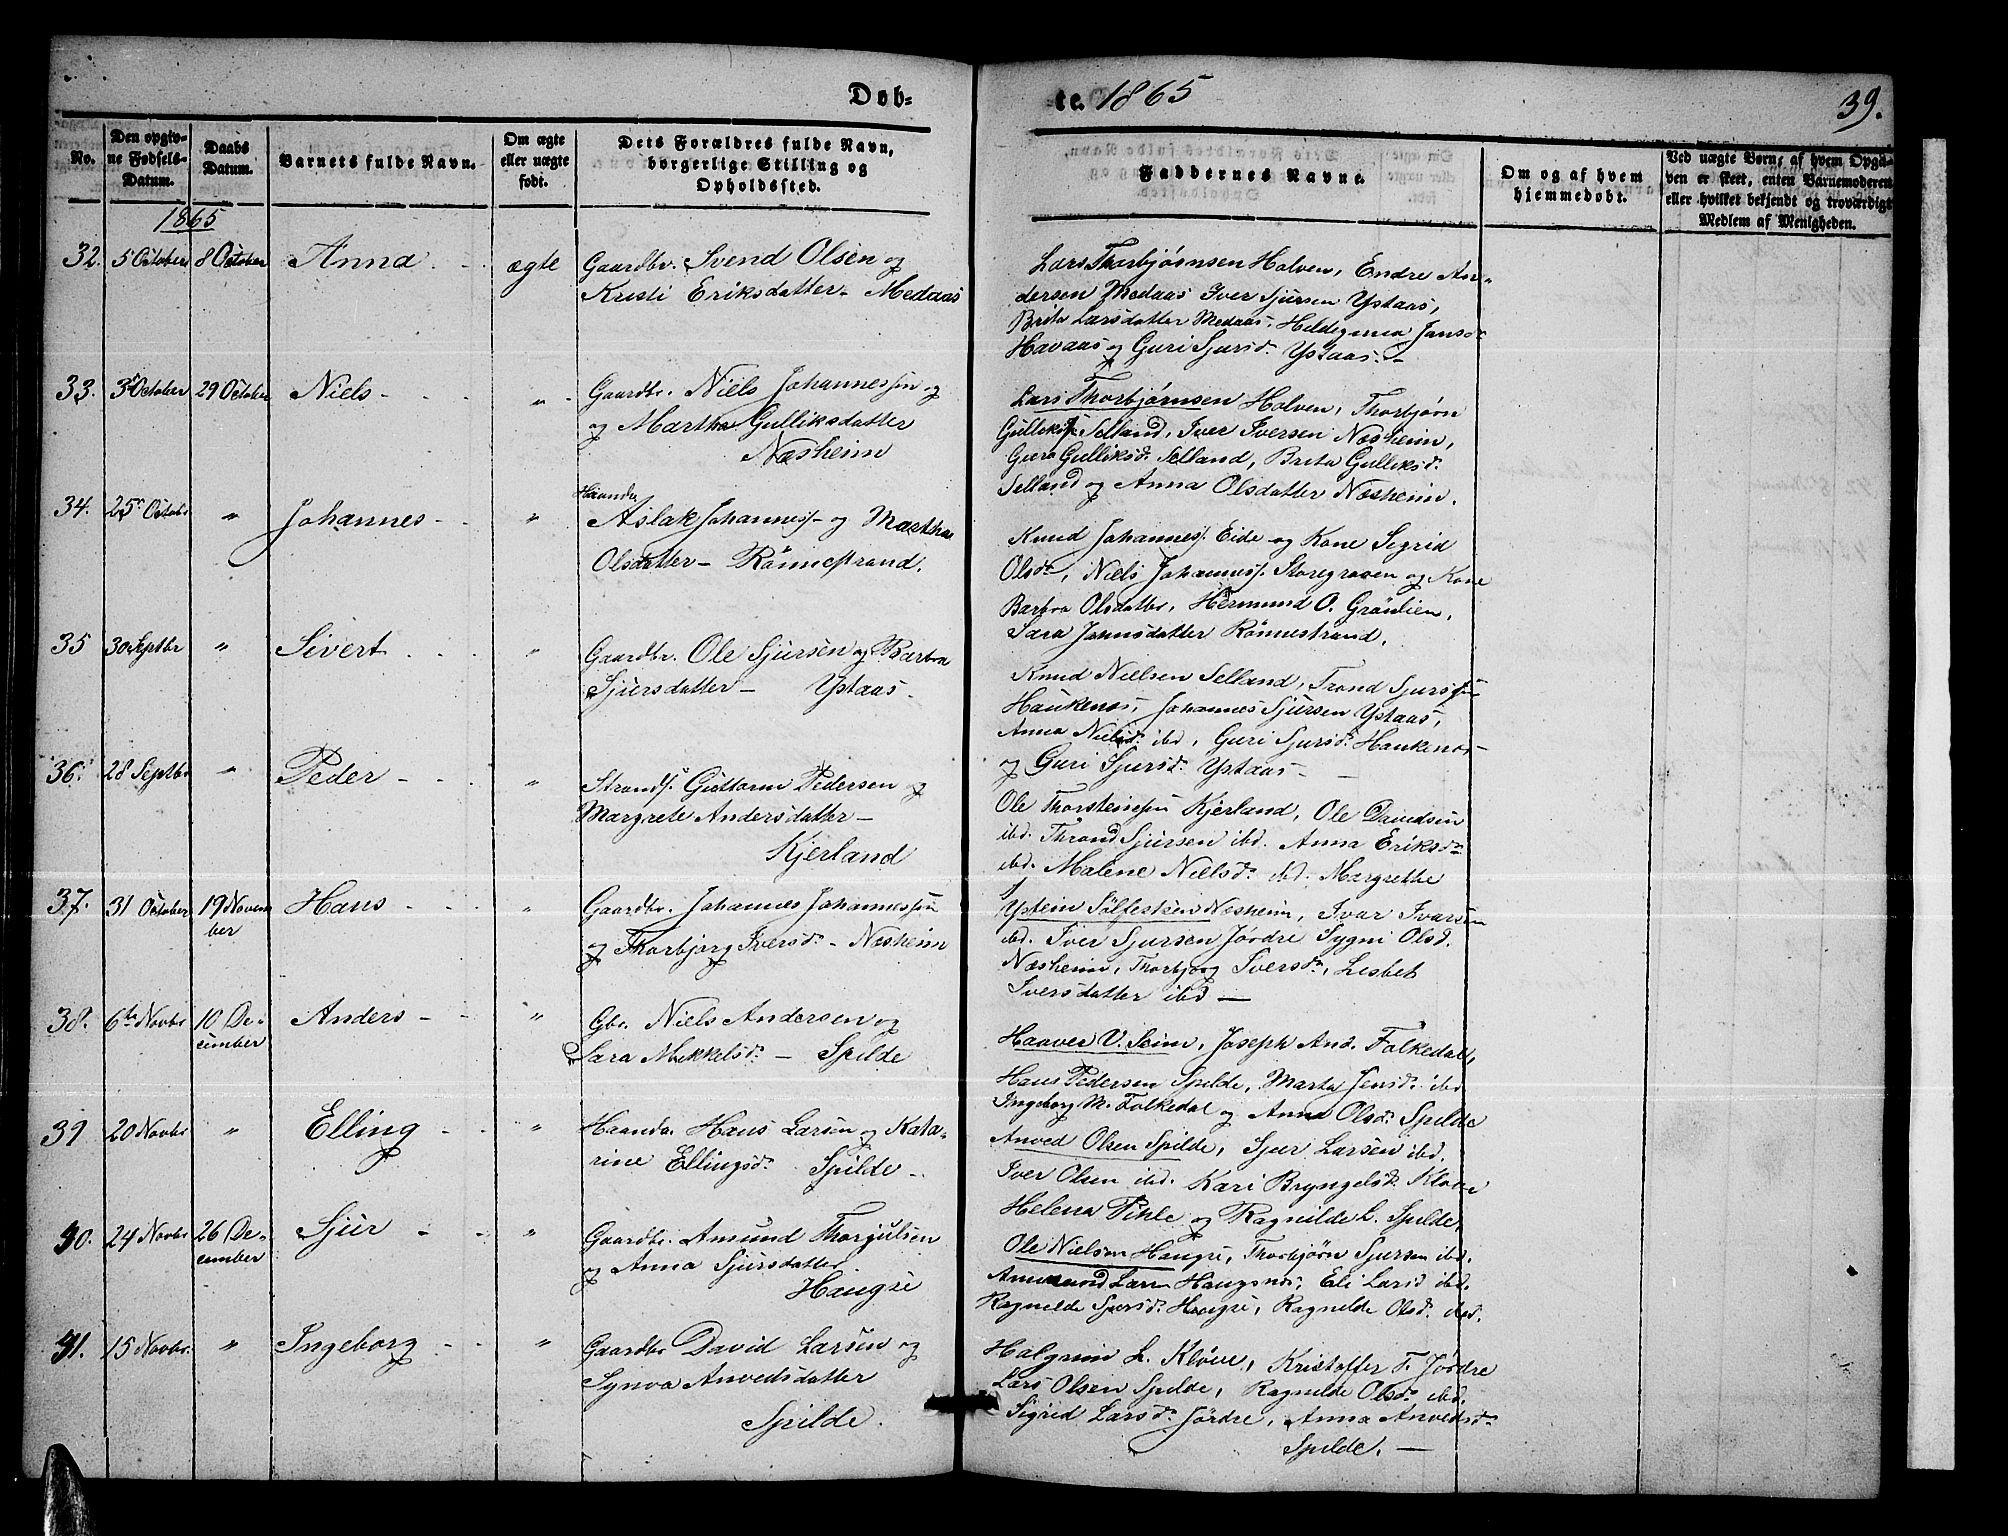 Døb-
te. 1865
39.
No.
Den opgiv-
ne Fødsels-
Datum.
Daabs
Datum.
Barnets fulde Navn.
Om ægte
eller uægte
født.
Dets Forældres fulde Navn,
borgerlige Stilling og
Opholdssted.
Faddernes Navne.
Om og af hvem
hjemmedøbt.
Ved uægte Børn, af hvem Opgi-
ven er skeet, enten Barnemoderen
eller hvilket bekjendt og troværdigt
Medlem af Menigheden.
1865
32. 5 October 8 October Anna - - ægte Gaardbr. Svend Olsen og
Kristi Eriksdatter - Medaas
Lars Thorbjørnsen Holven, Endre An-
dersen Medaas Iver Sjursen Ystaas,
Brita Larsdatter Medaas, Jansd.
Havaas og Guri Sjursd. Ystaas. -
33. October 29 October Niels - - " Gaardbr. Niels Johannessen og
og Martha Gulliksdatter
Næsheim
Lars Thorbjørnsen Holven, Thorbjørn
Gulliks. Selland, Iver Iversen Næsheim,
Gulliksd. Selland, Brita Gulliksd.
Selland og Anna Olsdatter Næsheim.
34. 25 Octobr " Johannes - - " Haandv.
Aslak Johanness. og Martha
Olsdatter - Rönnestrand.
Knud Johanness. Eide og Kone Sigrid
Olsdr, Niels Johanness. Storegraven og Kone
Barbra Olsdatter, Hermund O. Grönlien,
Sara Jansdatter Rönnestrand.
35 30 Septbr " Sivert - - " Gaardbr. Ole Sjursen og Barbra
Sjursdatter - Ystaas -
Knud Nielsen Selland, Trond Sjurssen
Haukenæs, Johannes Sjursen Ystaas,
Anna Nielsd. ibd, Guri Sjursd. Haukenæs -
og Guri Sjursd. Ystaas -
36. 28 Septbr " Peder - - " Strands. Guttorm Pedersen og
Margrete Andersdatter -
Kjerland
Ole Thorsteinssen Kjerland, Ole Davidsen
ibd. Thrond Sjursen ibd. Anna Eriksd.
ibd. Malene Nielsd. ibd. Margrethe
37. 31 October 19 Novem
ber Hans - - " Gaardbr. Johannes Johannessen
og Thorbjørg Iversd. - Næsheim
Ystein Sølfestsen Næsheim, Ivar Ivarsen
ibd. Iver Sjursen Jördre Sygni Olsd.
Næsheim, Thorbjorg Iversd., Lisbet
Iversdatter ibd -
38. 6te Novbr 10 De-
cember Anders - - " Gbr. Niels Andersen og
Sara Mikkelsd. - Spilde
Haaver V. Seim, Joseph And. Folkedal,
Hans Pedersen Spilde, Marta Jensd. ibd
Ingeborg M. Folkedal og Anna Olsd. Spilde
39 20 Novbr " Elling - - " Haandv. Hans Larsen og Kata-
rine Ellingsd. Spilde -
Anved Olsen Spilde, Sjur Larsen ibd.
Iver Olsen ibd. Kari Bryngelsd. Kløve
Helena Pihle og Ragnilde L. Spilde,
40. 24 Novbr 26 De-
cember Sjur - - " Gaardbr. Amund Thorgilsen
og Anna Sjursdatter.
Haugse
Ole Nielsen Haugse, Thorbjørn Sjursen ibd,
Ammund Larsen Haugsnæs, Eli Larsd ibd.
Ragnilde Sjursd. Haugse, Ragnilde Olsd. ibd.
41. 15 Novbr. " Ingeborg - - " Gaardbr David Larsen og
Synva Anvedsdatter
Spilde.
L. Kløve, Kristoffer T. Jördre
Lars Olsen Spilde, Ragnilde Olsd. ibd.
Sigrid Larsd. Jördre, Anna Anvedsd.
Spilde. -